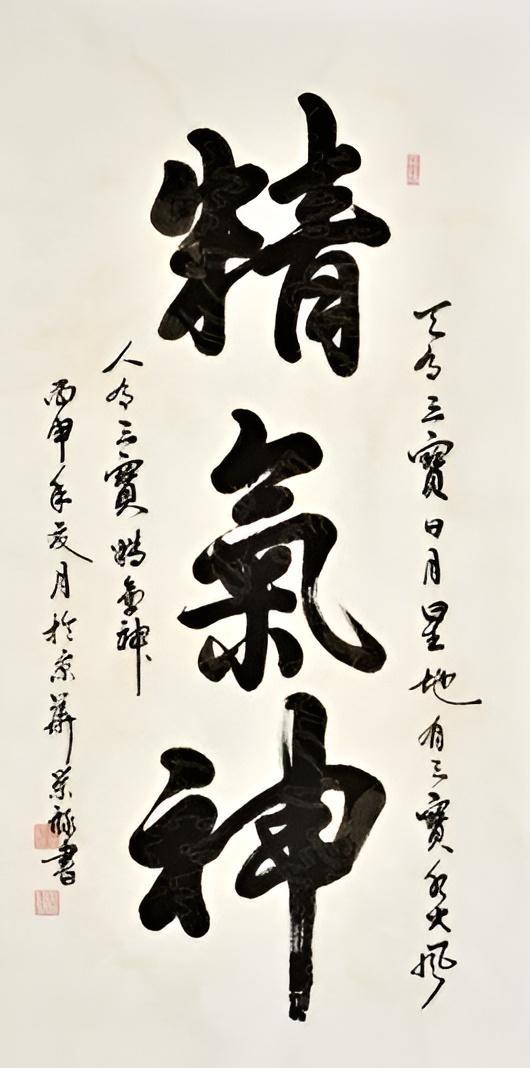 天有三寶日月星地有三寶水火風
精氣神
人有三寶精氣神
丙申年夏月於京華榮祿書